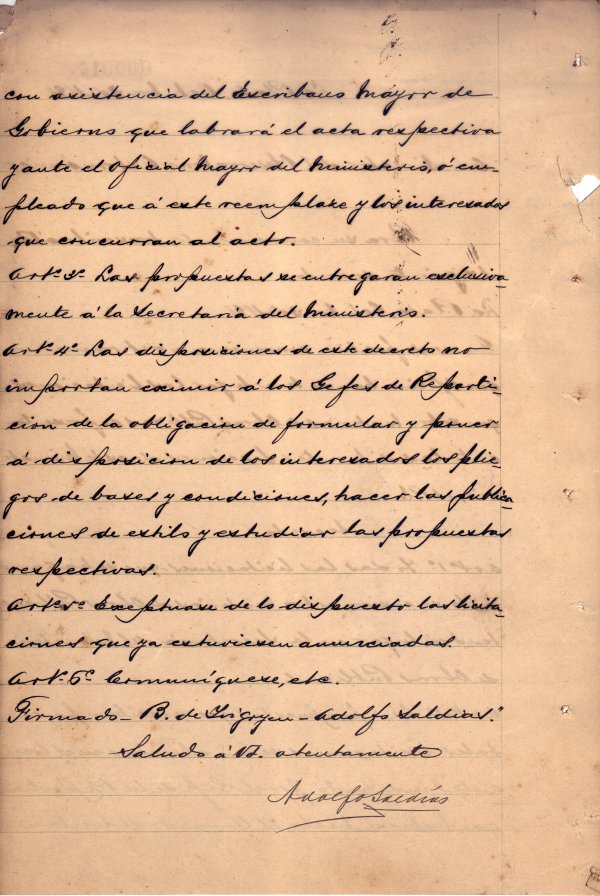 con asistencia del Escribano Mayor de
Gobierno que labrará el acta respectiva
y ante el Oficial Mayor del Ministerio, ó em-
pleado que á este reemplaze y los interesados
que concurran al acto.
Art.º 3º Las propuestas se entregaran exclusiva-
mente á la Secretaria del Ministerio.
Art.º 4º Las disposiciones de este decreto no
importan eximir á los Gefes de Reparti-
cion de la obligacion de formular y poner
á disposicion de los interesados los plie-
gos de bases y condiciones, hacer las publica-
ciones de estilo y estudiar las propuestas
respectivas.
Art.º 5º Exceptuase de lo dispuesto las licita-
ciones que ya estuviesen anunciadas.
Art.º 6º Comuníquese, etc.
Firmado - B. de Irigoyen - Adolfo Saldias."
Saludo á Vd. atentamente
Adolfo Saldías